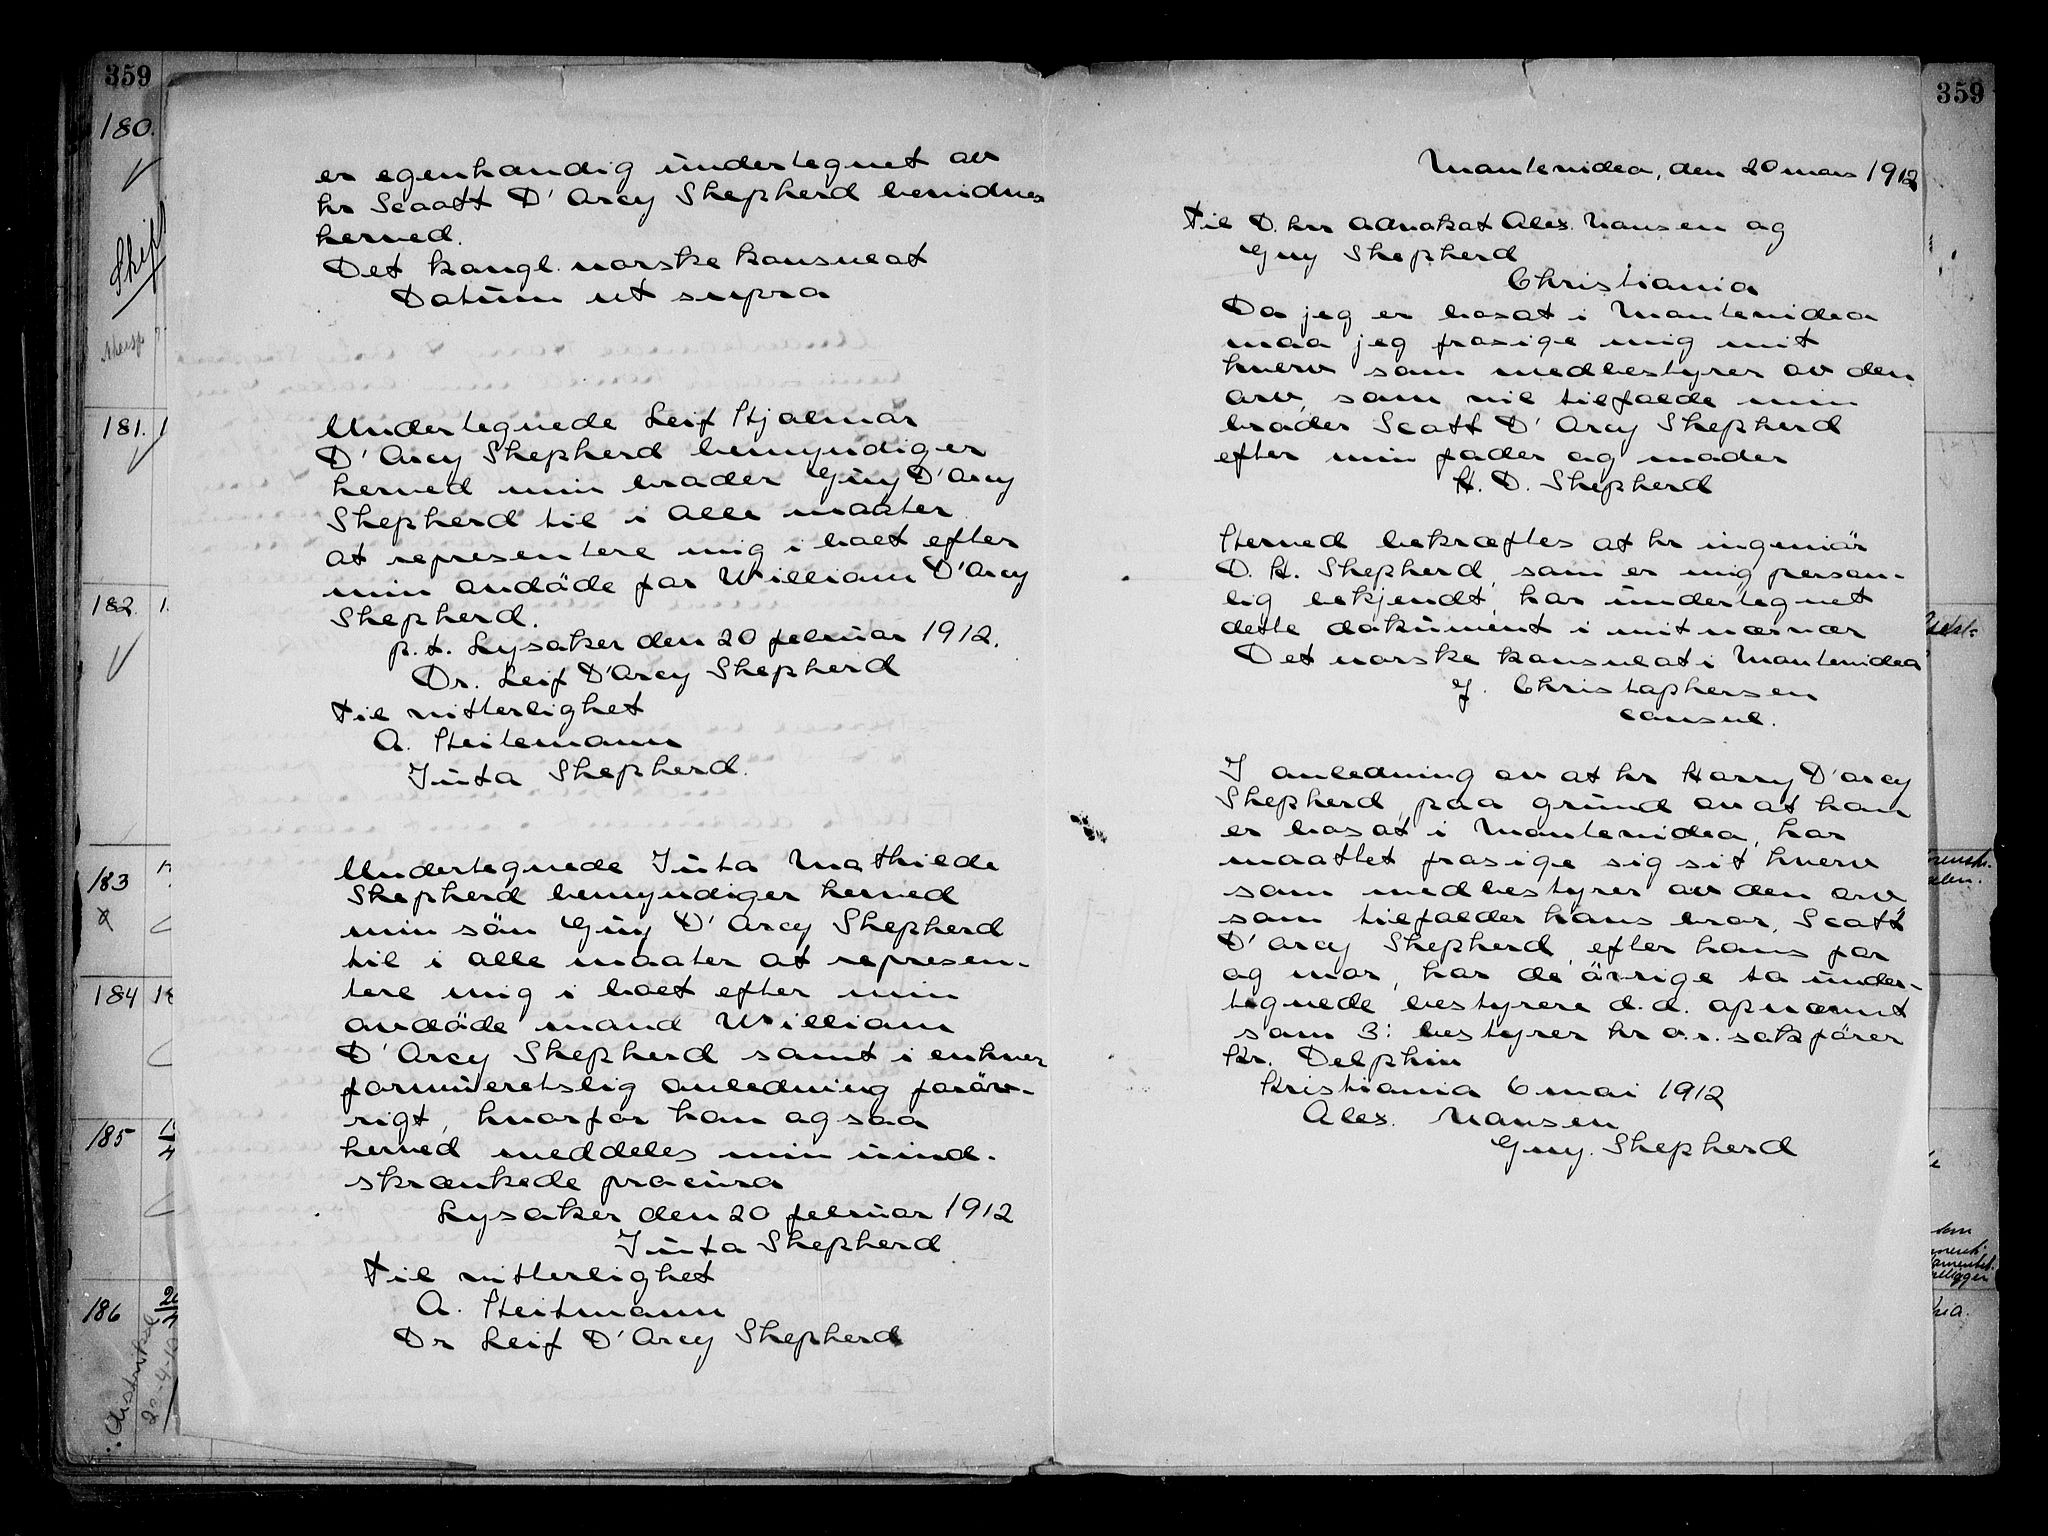 359
180.
181.
182.
183
184
185
186
er egenhændig undertegnet av
hr Scott D'Arcy Shepherd bevidnes
herved.
Det kongl. norske konsulat
Datum ut supra
Undertegnede Leif Hjalmar
D'Arcy Shepherd bemyndiger
herved min broder Guy D'Arcy
Shepherd til i alle maater
at representere mig i boet efter
min avdöde far William D'Arcy
Shepherd.
p.t. Lysaker den 20 februar 1912.
Dr. Leif D'Arcy Shepherd
Til vitterlighet
A. Heitemann
Juta Shepherd.
Undertegnede Juta Mathilde
Shepherd bemyndiger herved
min sön Guy D'Arcy Shepherd
til i alle maater at represen-
tere mig i boet efter min
avdöde mand William
D'Arcy Shepherd samt i enhver
formueretslig anledning foröv-
rigt, hvorfor han ogsaa
herved meddeles min uind-
skrænkede procura
Lysaker den 20 februar 1912
Juta Shepherd
Til vitterlighet
A. Heitmann
Dr Leif D'Arcy Shepherd
359
Montevideo, den 20 mars 1912
Til D. hrr advokat Alex. Nansen og
Guy Shepherd
Christiania
Da jeg er bosat i Montevideo
maa jeg frasige mig mit
hverv som medbestyrer av den
arv, som vil tilfalde min
broder Scott D'Arcy Shepherd
efter min fader og moder
H. D. Shepherd
Herved bekræftes at hr ingeniör
D. H. Shepherd, som er mig person-
lig bekjendt, har undertegnet
dette dokument i mit nærvær
Det norske konsulat i Montevideo
J. Christophersen
consul.
I anledning av at hr Harry D'Arcy
Shepherd, paa grund av at han
er bosat i Montevideo, har
maattet frasige sig sit hverv
som medbestyrer av den arv
som tilfalder hans bror, Scott
D'Arcy Shepherd, efter hans far
og mor, har de övrige to under-
tegnede bestyrere d.d. opnævnt
som 3: bestyrer hr o.r. sakförer
Kr. Delphin
Kristiania 6 mai 1912
Alex. Nansen
Guy. Shepherd